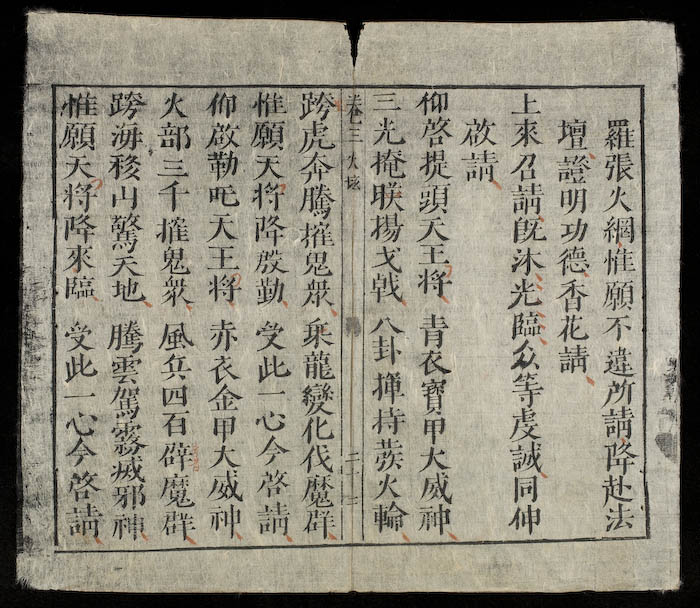 羅張火網惟願不違所請降赴法
壇證明功德香花請
上來召請既沐光臨众等虔誠同伸
啟請
仰啓提頭天王將 青衣寶甲大威神
三光掩联揚戈戟 八卦揮持發火輪
卷三 二十三
跨虎奔騰摧鬼众 乘龍變化伐魔群
惟願天將降殷勤 受此一心今啓請
仰啟勒叱天王將 赤衣金甲大威神
火部三千摧鬼衆 風兵四石薜魔群
跨海移山驚天地 騰雲駕霧滅邪神
惟願天將降來臨 受此一心今啓請